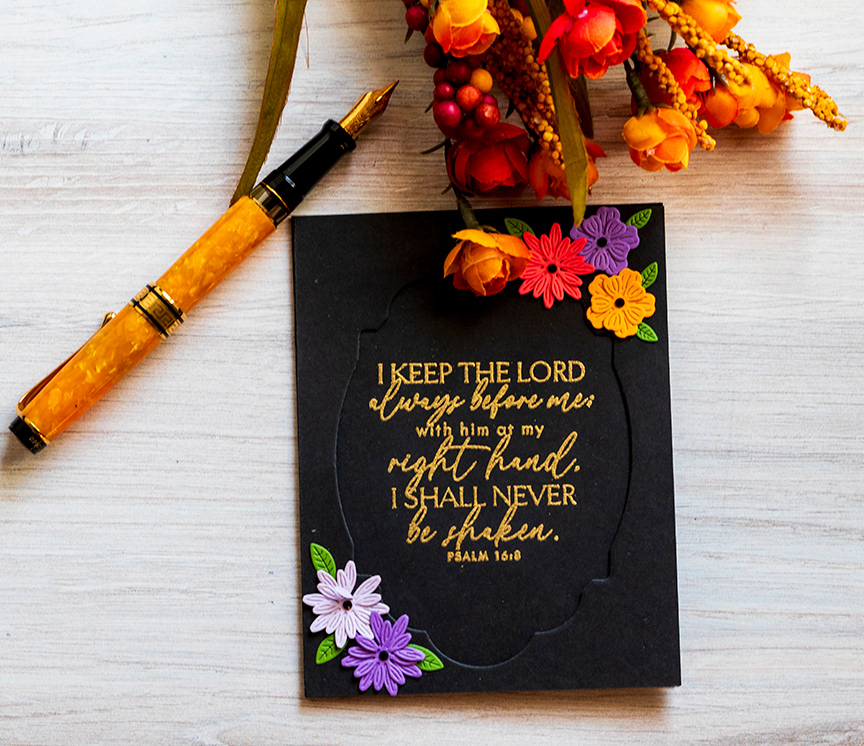 I KEEP THE LORD
always before me:
with him at my
right hand,
I SHALL NEVER
be shaken.
PSALM 16:8